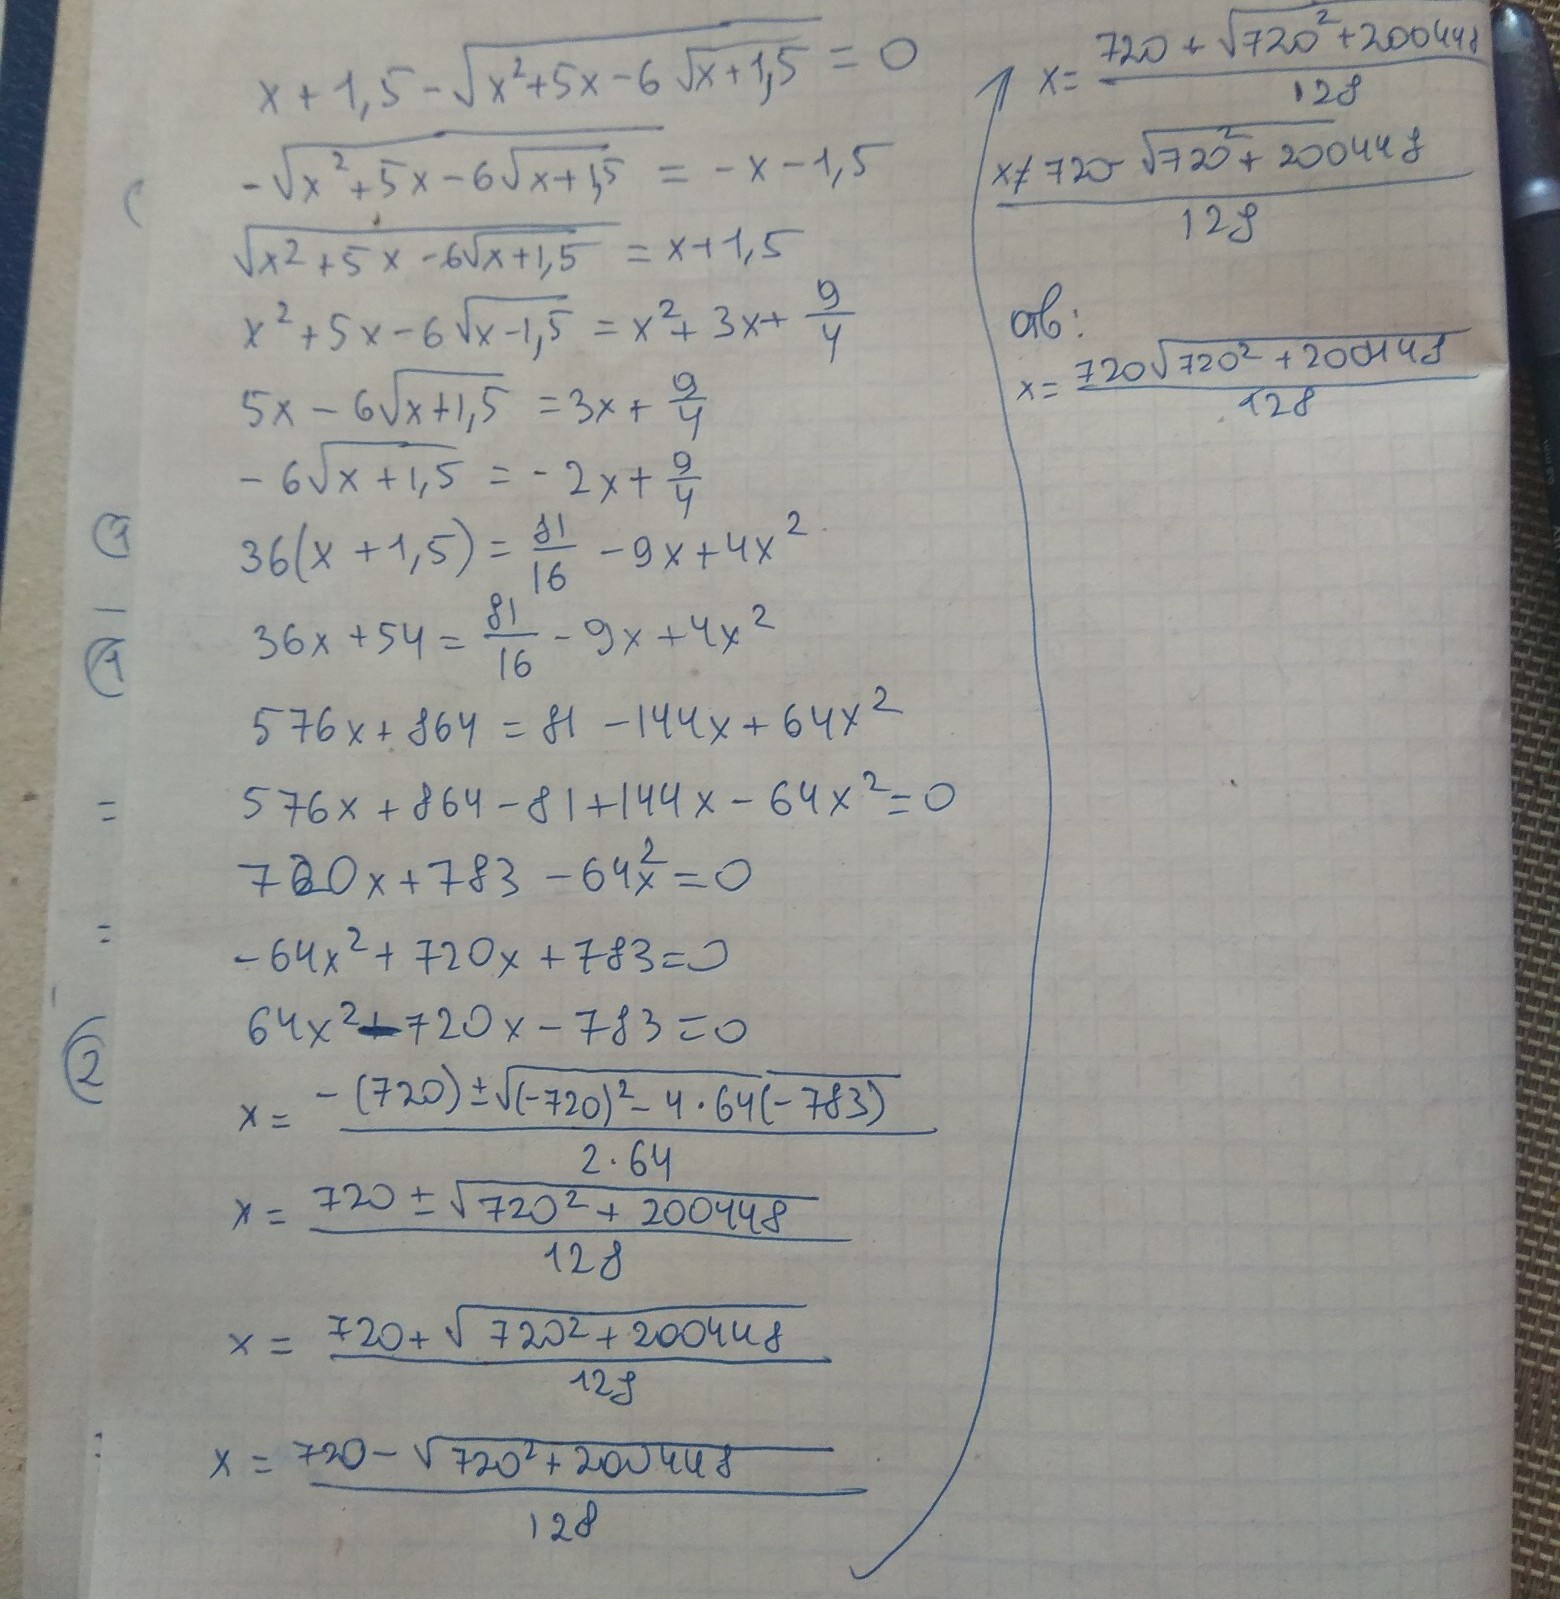 x + 1,5 - √(x² + 5x - 6√(x + 1,5)) = 0
-√(x² + 5x - 6√(x + 1,5)) = -x - 1,5
√(x² + 5x - 6√(x + 1,5)) = x + 1,5
x² + 5x - 6√(x - 1,5) = x² + 3x + 9/4
5x - 6√(x + 1,5) = 3x + 9/4
- 6√(x + 1,5) = - 2x + 9/4
36(x + 1,5) = 81/16 - 9x + 4x²
36x + 54 = 81/16 - 9x + 4x²
576x + 864 = 81 - 144x + 64x²
576x + 864 - 81 + 144x - 64x² = 0
720x + 783 - 64x² = 0
-64x² + 720x + 783 = 0
64x² - 720x - 783 = 0
x = (-(720) ± √((-720)² - 4·64(-783)))/(2·64)
x = (720 ± √(720² + 200448))/128
x = (720 + √(720² + 200448))/128
x = (720 - √(720² + 200448))/128
x = (720 + √(720² + 200448))/128
x ≠ (720 - √(720² + 200448))/128
отв:
x = (720√(720² + 200448))/128